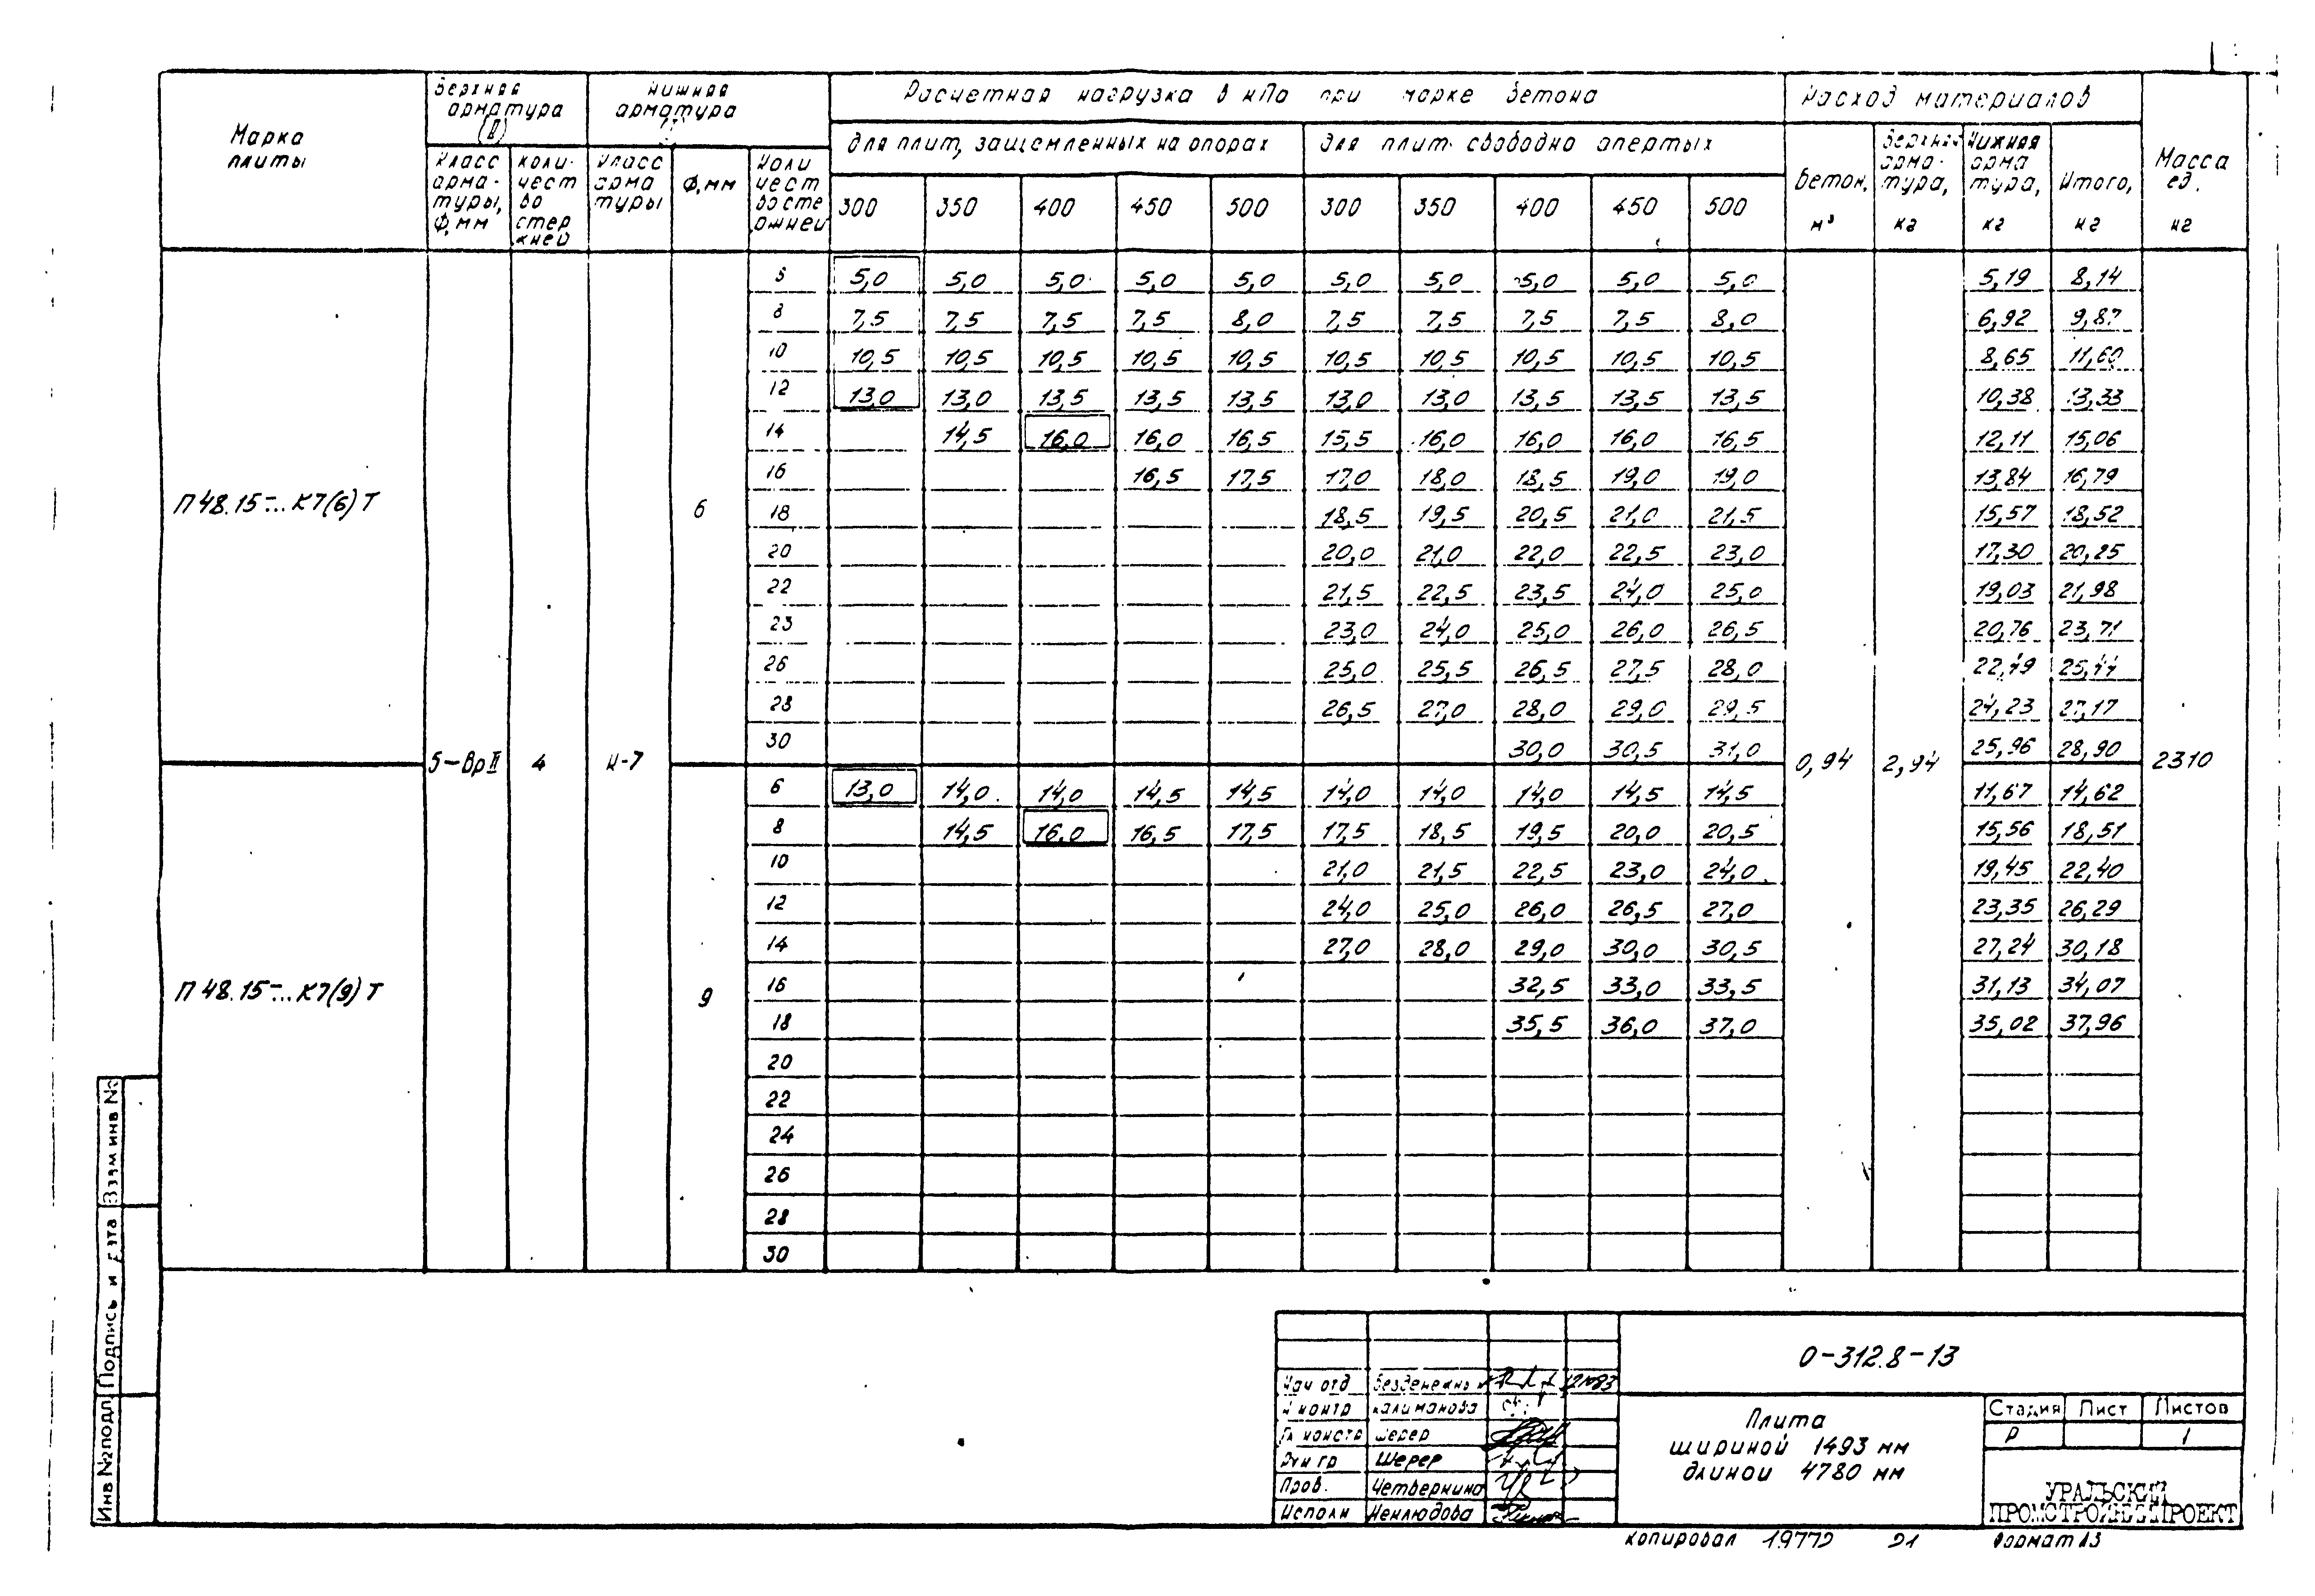 Марка плиты
Верхняя арматура (В)
Нижняя арматура
Расчетная нагрузка в кПа при марке бетона
Расход материалов
Масса ед. кг
для плит, защемленных на опорах
для плит свободно опертых
Класс арматуры, Ф, мм
Количество стержней
Класс арматуры
Ф, мм
Количество стержней
300 350 400 450 500 300 350 400 450 500
Бетон, м³
Верхняя арматура, кг
Нижняя арматура, кг
Итого, кг
П48.15-... К7(6)Т
5-ВрII 4 К-7 6
0,94 2,94 2310
6 5,0 5,0 5,0 5,0 5,0 5,0 5,0 5,0 5,0 5,0 5,19 8,14
8 7,5 7,5 7,5 7,5 8,0 7,5 7,5 7,5 7,5 8,0 6,92 9,87
10 10,5 10,5 10,5 10,5 10,5 10,5 10,5 10,5 10,5 10,5 8,65 11,60
12 13,0 13,0 13,5 13,5 13,5 13,0 13,0 13,5 13,5 13,5 10,38 13,33
14 14,5 16,0 16,0 16,5 15,5 16,0 16,0 16,0 16,5 12,11 15,06
16 16,5 17,5 17,0 18,0 18,5 19,0 19,0 13,84 16,79
18 18,5 19,5 20,5 21,0 21,5 15,57 18,52
20 20,0 21,0 22,0 22,5 23,0 17,30 20,25
22 21,5 22,5 23,5 24,0 25,0 19,03 21,98
23 23,0 24,0 25,0 26,0 26,5 20,76 23,71
26 25,0 25,5 26,5 27,5 28,0 22,49 25,44
28 26,5 27,0 28,0 29,0 29,5 24,23 27,17
30 30,0 30,5 31,0 25,96 28,90
П48.15-... К7(9)Т
9
6 13,0 14,0 14,0 14,5 14,5 14,0 14,0 14,0 14,5 14,5 11,67 14,62
8 14,5 16,0 16,5 17,5 17,5 18,5 19,5 20,0 20,5 15,56 18,51
10 21,0 21,5 22,5 23,0 24,0 19,45 22,40
12 24,0 25,0 26,0 26,5 27,0 23,35 26,29
14 27,0 28,0 29,0 30,0 30,5 27,24 30,18
16 32,5 33,0 33,5 31,13 34,07
18 35,5 36,0 37,0 35,02 37,96
20
22
24
26
28
30
Инв №подл
Подпись и дата
Взам инв №
0-312.8-13
Нач отд
Н контр Калиманова
Гл констр Шерер
Рук гр Шерер
Пров. Четверкина
Исполн Неклюдова
Плита
шириной 1493 мм
длиной 4780 мм
Стадия Лист Листов
Р 1
УРАЛЬСКИЙ
ПРОМСТРОЙНИИПРОЕКТ
Копировал 19772 21 Формат А3